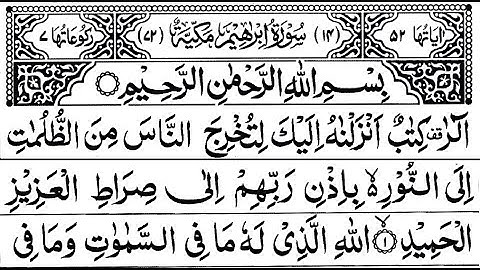 اٰيَاتُهَا ٥٢ (١٤) سُوْرَةُ اِبْرٰهِيْمَ مَكِّيَّةٌ (٧٢) رُكُوْعَاتُهَا ٧
بِسْمِ اللّٰهِ الرَّحْمٰنِ الرَّحِيْمِ
الٓرٰ قف كِتٰبٌ اَنْزَلْنٰهُ اِلَيْكَ لِتُخْرِجَ النَّاسَ مِنَ الظُّلُمٰتِ
اِلَى النُّوْرِ ۙ بِاِذْنِ رَبِّهِمْ اِلٰى صِرَاطِ الْعَزِيْزِ
الْحَمِيْدِ ۙ ١ اللّٰهِ الَّذِىْ لَهٗ مَا فِى السَّمٰوٰتِ وَمَا فِى